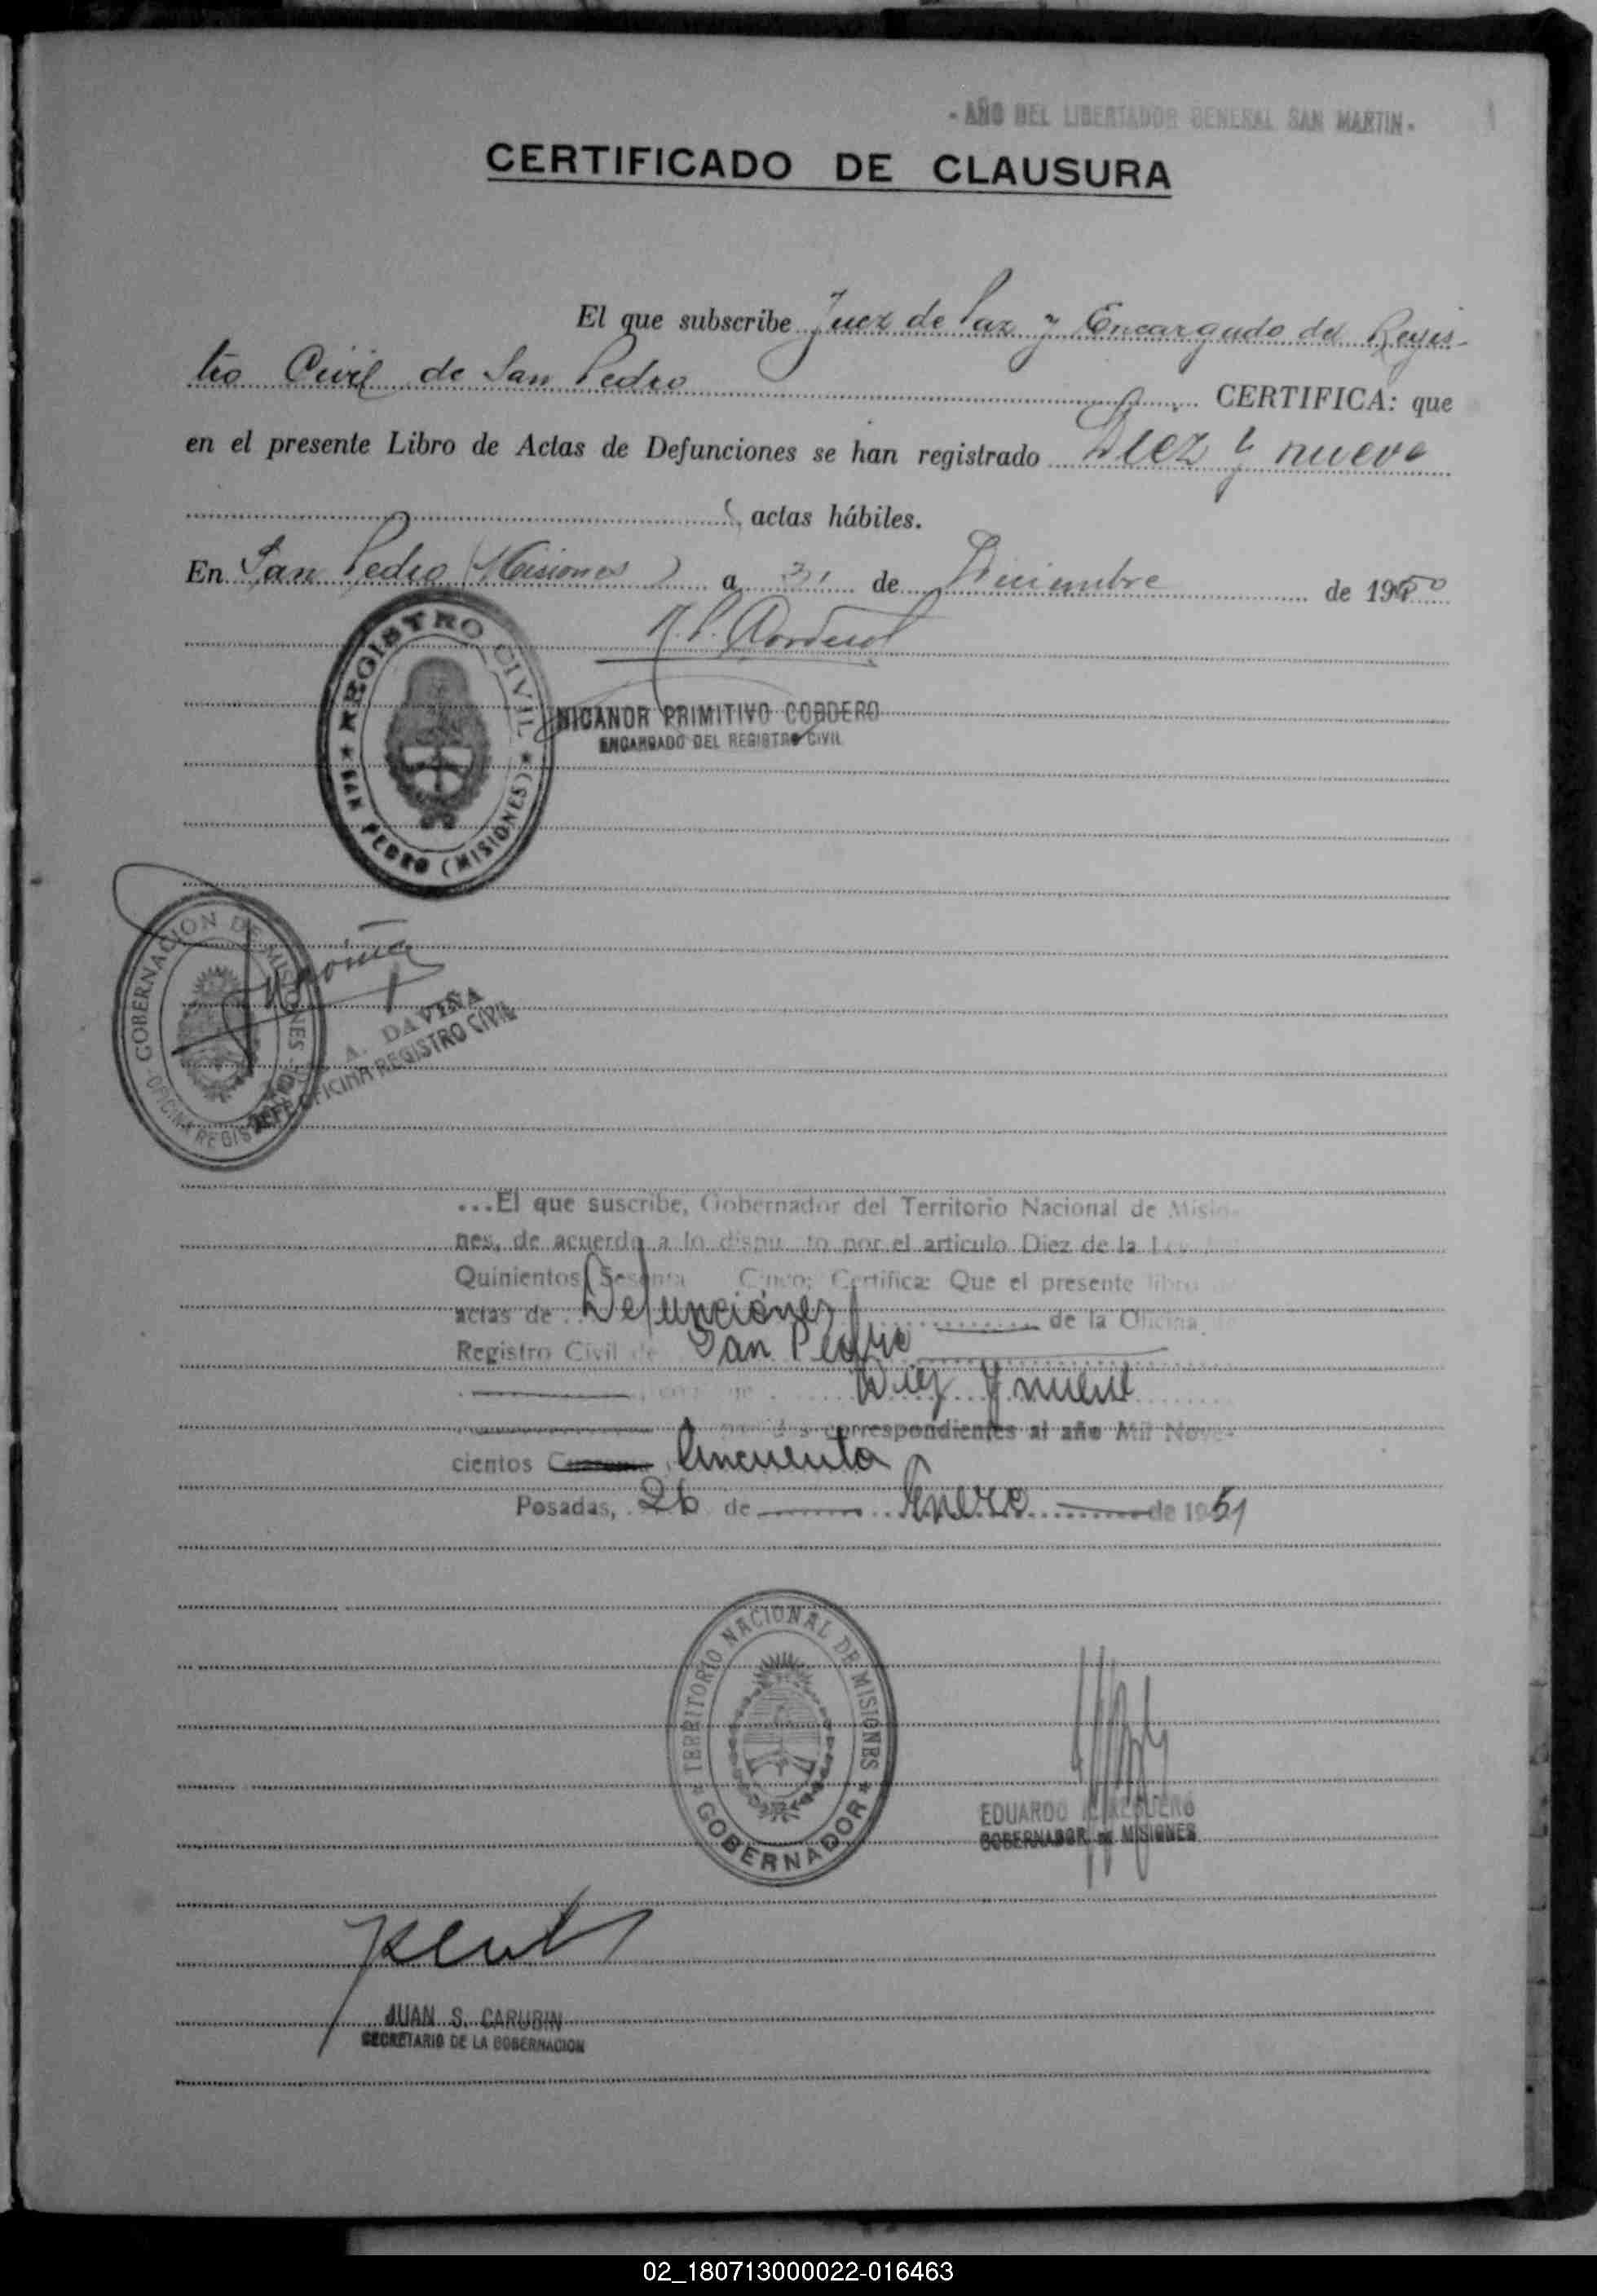 - AÑO DEL LIBERTADOR GENERAL SAN MARTIN -
CERTIFICADO DE CLAUSURA
El que subscribe Juez de Paz y Encargado del Regis-
tro Civil de San Pedro CERTIFICA: que
en el presente Libro de Actas de Defunciones se han registrado Diez y nueve
actas hábiles.
En San Pedro (Misiones) a 31 de Diciembre de 1950
N. P. Cordero
REGISTRO CIVIL
SAN PEDRO (MISIONES)
NICANOR PRIMITIVO CORDERO
ENCARGADO DEL REGISTRO CIVIL
GOBERNACION DE MISIONES
OFICINA REGISTRO
A. DAVIÑA
JEFE OFICINA REGISTRO CIVIL
...El que suscribe, Gobernador del Territorio Nacional de Misio-
nes, de acuerdo a lo dispu to por el articulo Diez de la
Quinientos Sesenta Cinco; Certifica: Que el presente libro
actas de Defunciones de la Oficina
Registro Civil de San Pedro
Diez y nueve
correspondientes al año Mil Nove-
cientos Cincuenta
Posadas, 26 de Enero de 1951
TERRITORIO NACIONAL DE MISIONES
GOBERNADOR
EDUARDO
GOBERNADOR DE MISIONES
JUAN S. CARUBIN
SECRETARIO DE LA GOBERNACION
02_180713000022-016463